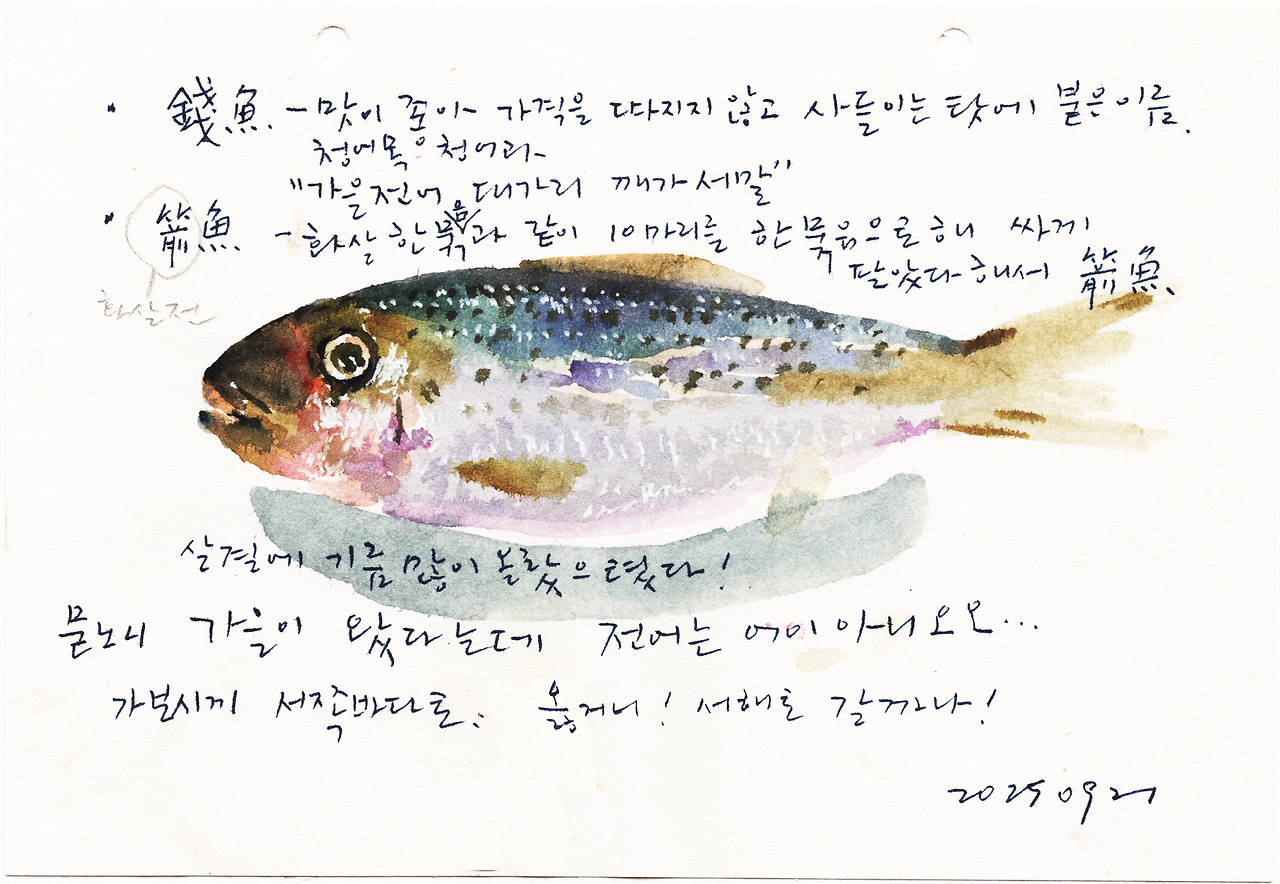 · 錢魚. - 맛이 좋아 가격을 따지지 않고 사들이는 탓에 붙은 이름.
청어목 청어과
"가을전어 대가리 깨가 세말"
· 箭魚 - 화살 한 묶음과 같이 10마리를 한 묶음으로 해 싸게
팔았다 해서 箭魚.
화살전
살결에 기름 많이 올랐으렸다!
묻노니 가을이 왔다는데 전어는 어이 아니오모...
가보시게 서쪽바다로. 옳거니! 서해로 갈꺼나!
2025 09 21